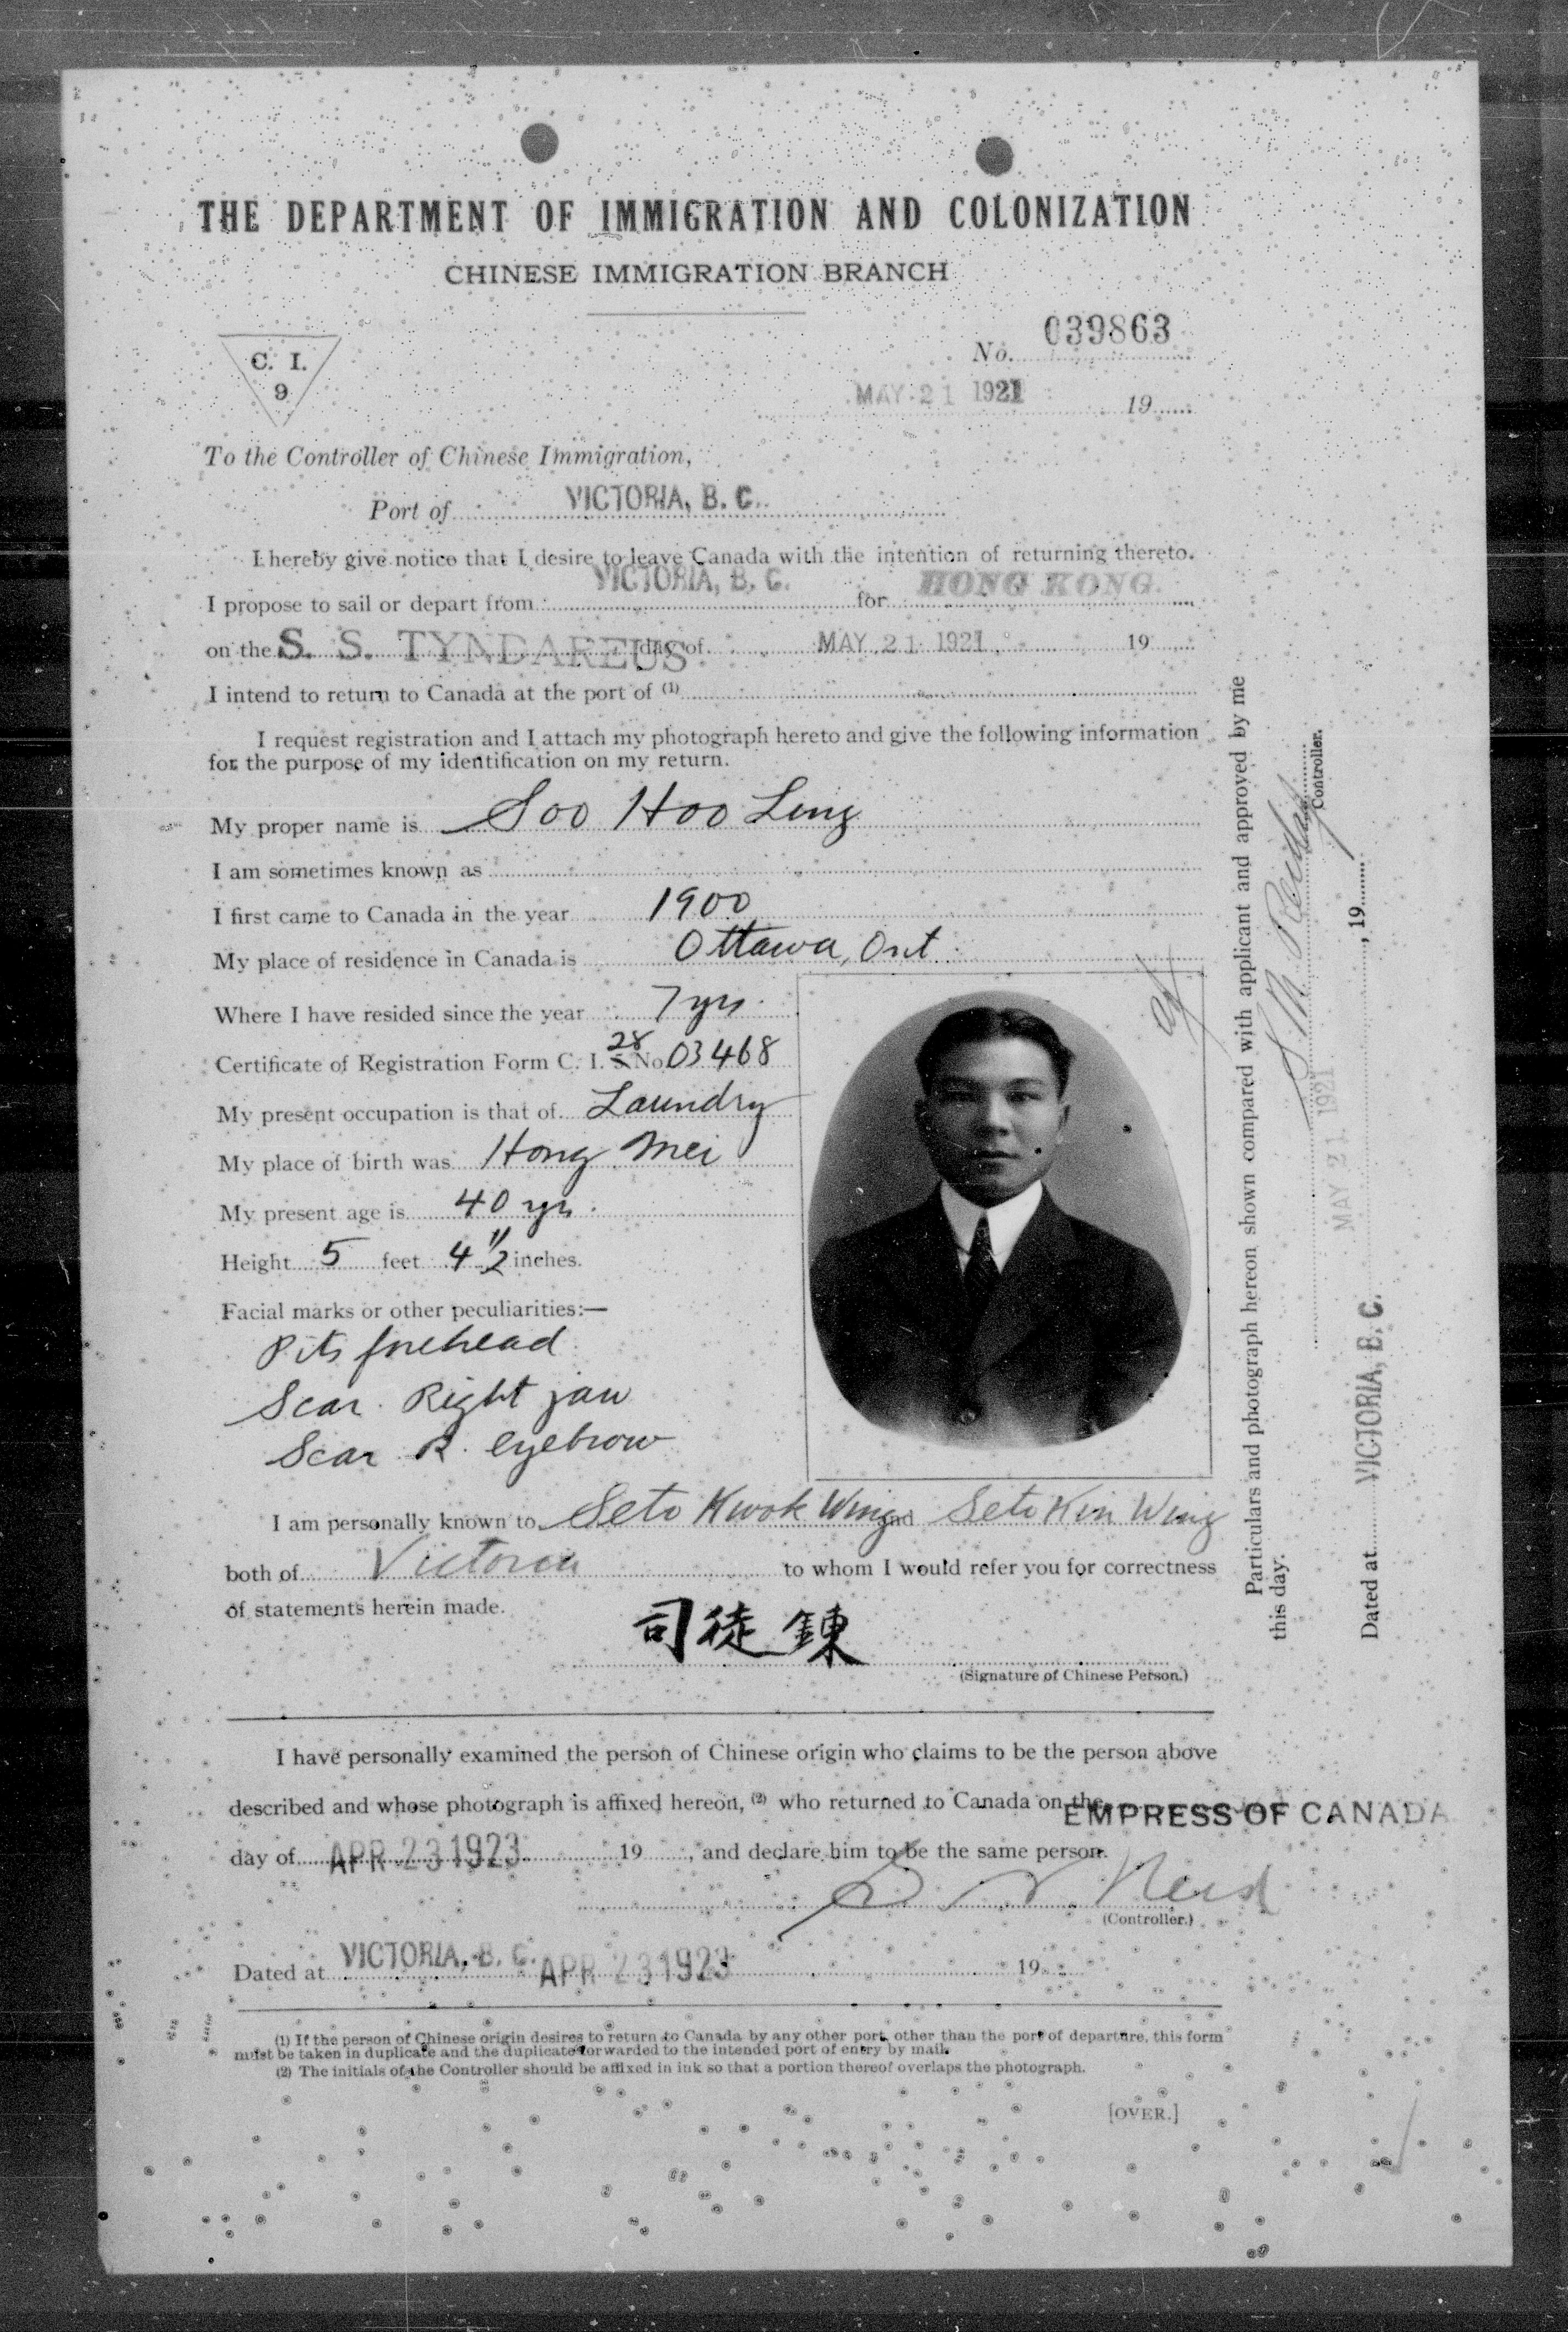 THE DEPARTMENT OF IMMIGRATION AND COLONIZATION
CHINESE IMMIGRATION BRANCH
C. I.
9
No. 039863
MAY 21 1921 19
To the Controller of Chinese Immigration,
Port of VICTORIA, B. C.
I hereby give notice that I desire to leave Canada with the intention of returning thereto.
I propose to sail or depart from VICTORIA, B. C. for HONG KONG.
on the S. S. TYNDAREUS day of MAY 21 1921 19
I intend to return to Canada at the port of (1)
I request registration and I attach my photograph hereto and give the following information
for the purpose of my identification on my return.
My proper name is Soo Hoo Ling
I am sometimes known as
I first came to Canada in the year 1900
My place of residence in Canada is Ottawa, Ont.
Where I have resided since the year 7 yrs.
Certificate of Registration Form C. I. 5 28 No. 03468
My present occupation is that of Laundry
My place of birth was Hong Mei
My present age is 40 yrs.
Height 5 feet 4 1/2 inches.
Facial marks or other peculiarities:—
Pits forehead
Scar Right jaw
Scar R. eyebrow
I am personally known to Seto Kwok Wing and Seto Kin Wing
both of Victoria to whom I would refer you for correctness
of statements herein made.
司徒錬
(Signature of Chinese Person.)
I have personally examined the person of Chinese origin who claims to be the person above
described and whose photograph is affixed hereon, (2) who returned to Canada on the EMPRESS OF CANADA
day of APR 23 1923 19 , and declare him to be the same person.
Reid
(Controller.)
Dated at VICTORIA, B. C. APR 23 1923 19
(1) If the person of Chinese origin desires to return to Canada by any other port, other than the port of departure, this form
must be taken in duplicate and the duplicate forwarded to the intended port of entry by mail.
(2) The initials of the Controller should be affixed in ink so that a portion thereof overlaps the photograph.
[OVER.]
Particulars and photograph hereon shown compared with applicant and approved by me
this day.
Controller.
Dated at VICTORIA, B. C. MAY 21 1921 , 19